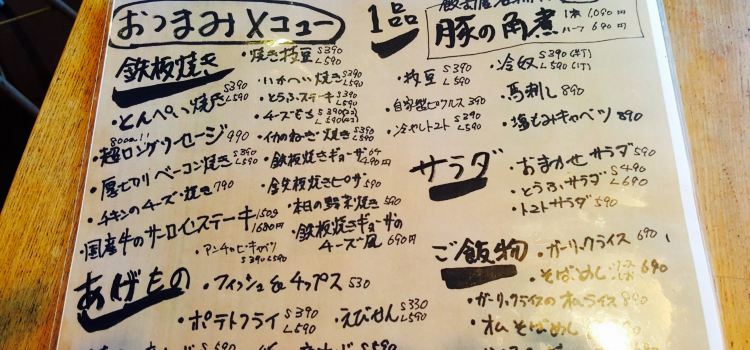 おつまみメニュー
鉄板焼き
・とんぺい焼き S390 L590
800m!!
・超ロングソーセージ 990
・厚切りベーコン焼き S390 L590
・チキンのチーズ焼き 790
・国産牛のサーロインステーキ 150g 1680円
・アンチョビキャベツ S390 L590
・焼き枝豆 S390 L590
焼き S390 L590
・とうふステーキ S390 L590
・チーズもち S390(2コ)
・イカのねぎ焼き S390 L590
・鉄板焼きギョーザ 6ヶ 490円
・鉄板焼きピザ 590
・本日の野菜焼き 590
・鉄板焼きギョーザのチーズ風 690円
1品
豚の角煮 1本 1,090円 ハーフ 690円
・枝豆 S390 L590
・自家製ピクルス 390
・冷やしトマト S390 L590
・冷奴 S390(半丁) L590(1丁)
・馬刺し 890
・塩もみキャベツ 890
サラダ
・おまかせサラダ 590
・とうふサラダ S490 L690
・トマトサラダ 590
ご飯物
・ガーリックライス 690
・そばめし 690
・ガーリックライスのオムライス 890
・オムそばめし
あげもの
・フィッシュ&チップス 530
・ポテトフライ S390 L590
・えびせん S330 L590